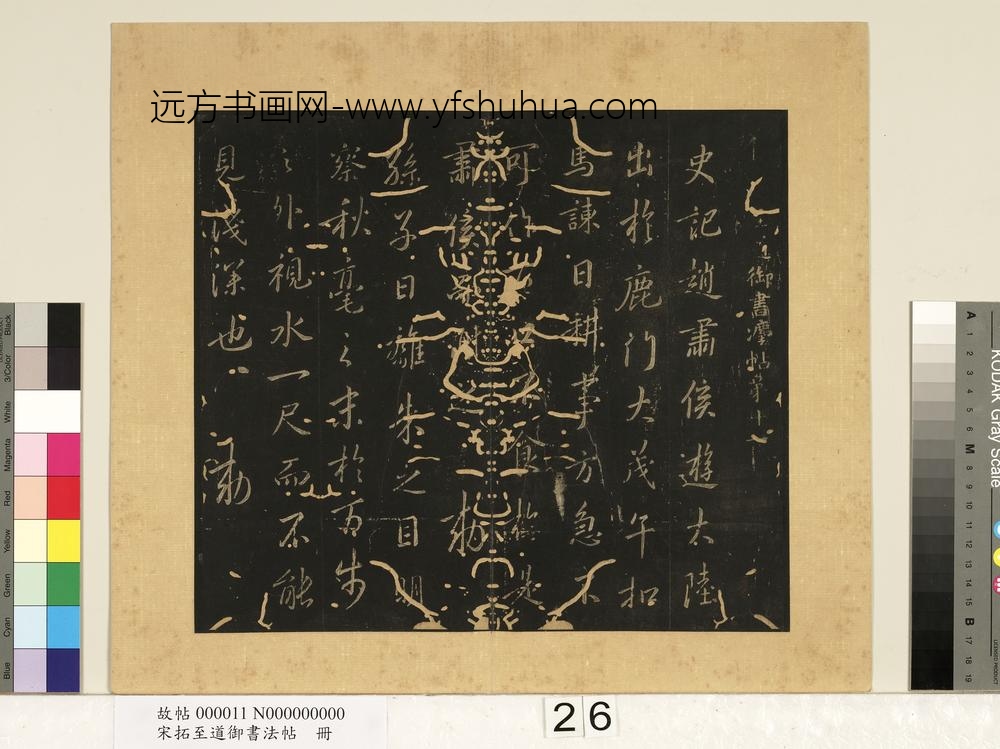 远方书画网-www.yfshuhua.com
御書歷帖第十
史記趙肅侯遊大陸
出於鹿門大茂午扣
馬諫曰耕事方急不
可作
食
是
肅侯
勅
孫子曰離朱之目明
察秋毫之末於百步
之外視水一尺而不能
見淺深也
勅
Black
3/Color
White
Magenta
Red
Yellow
Green
Cyan
Blue
KODAK Gray Scale
A 1 2 3 4 5 6 M 8 9 10 11 12 13 14 15 B 17 18 19
故帖 000011 N000000000
宋拓至道御書法帖 冊
26